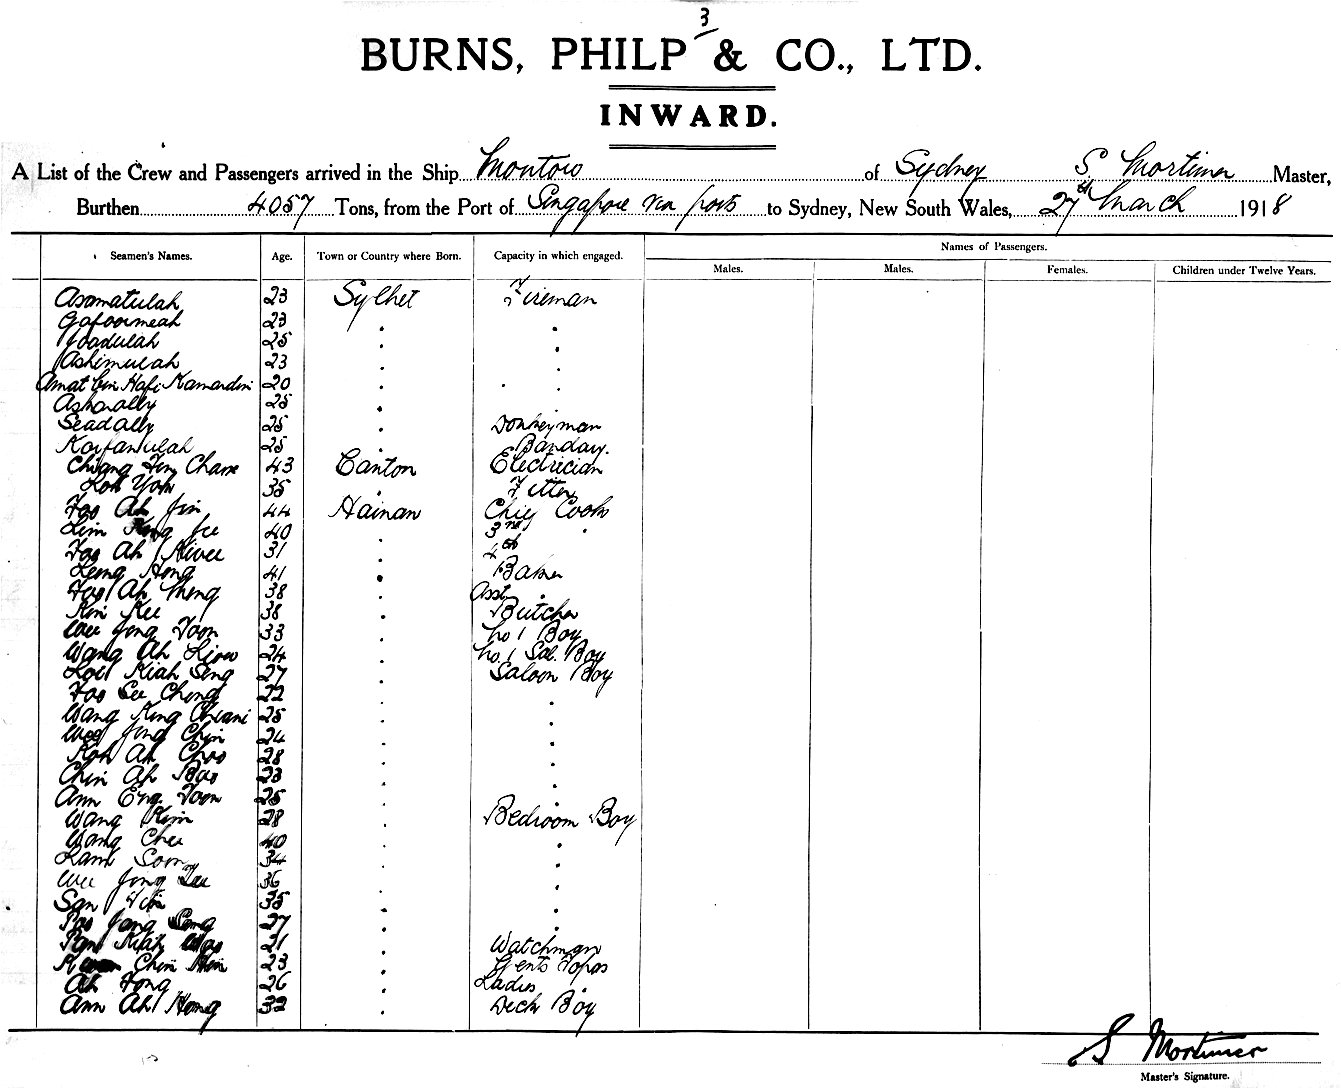 3
BURNS, PHILP & CO., LTD.
INWARD.
A List of the Crew and Passengers arrived in the Ship Montoro of Sydney S. Mortimer Master,
Burthen 4057 Tons, from the Port of Singapore via ports to Sydney, New South Wales, 27th March 1918
Names of Passengers.
Seamen's Names. Age. Town or Country where Born. Capacity in which engaged.
Males. Males. Females. Children under Twelve Years.
Asamatulah 23 Sylhet Fireman
Gafoormeah 23 . .
25 . .
Ashimulah 23 . .
Amat bin Kamardin 20 . .
25 .
Seadally 25 . Donkeyman
25 . Bandary.
Chiang Chane 43 Canton Electrician
Loh Yoh 35 . Fitter
Foo Ah Jin 44 Hainan Chief Cook
Lim 40 . 3rd .
Foo Ah 31 . 4th
Leong Hong 41 . Baker
Foo Ah Meng 38 . Asst .
Kim Kee 38 . Butcher
Wee Jong Toon 33 . No 1 Boy
Wang Ah 24 . No. 1 Sal. Boy
Kiah Seng 27 . Saloon Boy
Foo See Cheng 22 . .
Wang King 25 . .
Wee Jong Chin 24 . .
Koh Ah Choo 28 . .
Chin Ah 23 . .
Ann Eng Toon 25 . .
Wang Kim 28 . Bedroom Boy
Wang Chee 40 . .
Lam Soon 34 . .
Wee Jong 36 . .
San 35 . .
27 . .
21 . Watchman
Chin 23 . Gents Topas
Ah Fong 26 . Ladies .
Ann Ah Hong 32 . Deck Boy
S Mortimer
Master's Signature.